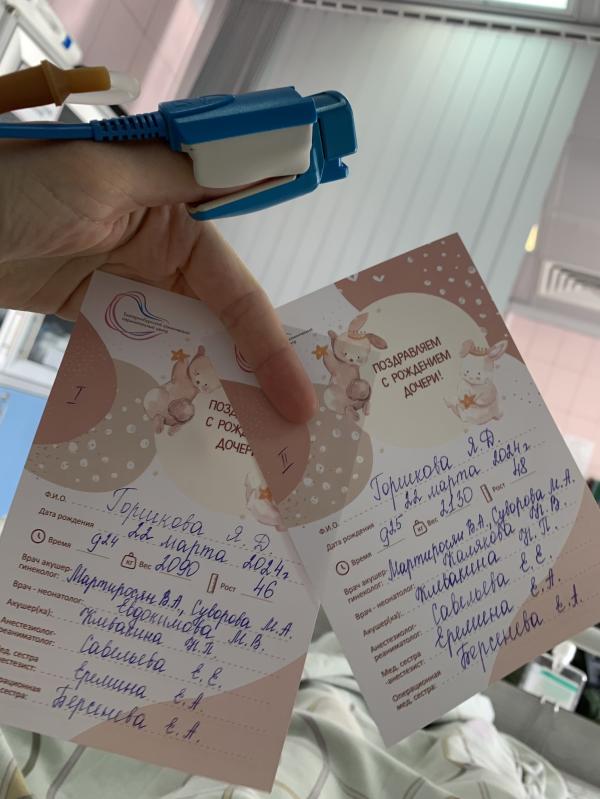 Екатеринбургский клинический
перинатальный центр
I
ПОЗД
С РОЖД
ДОЧЕР
Ф.И.О. Горшкова Я.Д.
Дата рождения 22 марта 2024г
Время 924 Вес 2090 Рост 46
Врач акушер-
гинеколог: Мартиросян В.А, Суворова М.А.
Врач - неонатолог: Евдокимова М.В.
Акушер(ка): Кивавина Н.П
Анестезиолог-
реаниматолог: Савельева Е.Е.
Мед. сестра
анестезист: Еремина Е.А
Операционная
сестра: Берсенева Е.А.
II
ПОЗДРАВЛЯЕМ
С РОЖДЕНИЕМ
ДОЧЕРИ!
Ф.И.О. Горшкова Я.Д.
Дата рождения 22 марта 2024г
Время 925 Вес 2230 Рост 48
Врач акушер-
гинеколог: Мартиросян В.А, Суворова М.А.
Врач - неонатолог: М.В.
Акушер(ка): Кивакина Н.П.
Анестезиолог-
реаниматолог: Савельева Е.Е.
Мед. сестра
-анестезист: Еремина Е.А.
Операционная
мед. сестра: Берсенева Е.А.